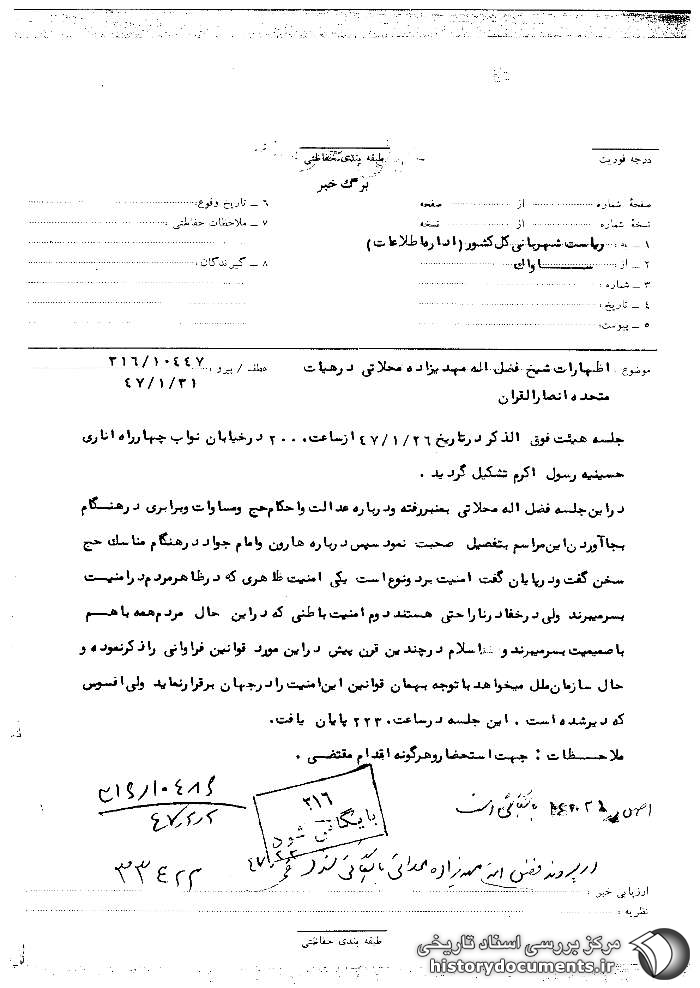 طبقه بندی حفاظتی
درجه فوریت
برگ خبر
صفحهٔ شماره از صفحه
نسخهٔ شماره از نسخه
۱ ــ به ریاست شهربانی کل کشور (اداره اطلاعات)
۲ ــ از ســـاواک
۳ ــ شماره :
۴ ــ تاریخ :
۵ ــ پیوست:
۶ ــ تاریخ وقوع:
۷ ــ ملاحظات حفاظتی :
۸ ــ گیرندگان:
موضوع : اظهارات شیخ فضل اله مهدیزاده محلاتی در هیات
متحده انصارالقران
عطف / پیرو : ۳۱۶/۱۰۴۴۷
۴۷/۱/۳۱
جلسه هیئت فوق الذکر در تاریخ ۴۷/۱/۲۶ از ساعت ۲۰۰۰ در خیابان نواب چهارراه اناری
حسینیه رسول اکرم تشکیل گردید .
در این جلسه فضل اله محلاتی بمنبر رفته و درباره عدالت و احکام حج و مساوات و برابری در هنگام
بجا آوردن این مراسم بتفصیل صحبت نمود سپس درباره هارون و امام جواد در هنگام مناسک حج
سخن گفت و در پایان گفت امنیت بر دو نوع است یکی امنیت ظاهری که در ظاهر مردم در امنیت
بسر میبرند ولی در خفا در ناراحتی هستند دوم امنیت باطنی که در این حال مردم همه با هم
با صمیمیت بسر میبرند و اسلام در چندین قرن پیش در این مورد قوانین فراوانی را ذکر نموده و
حال سازمان ملل میخواهد با توجه بهمان قوانین این امنیت را در جهان برقرار نماید ولی افسوس
که دیر شده است . این جلسه در ساعت ۲۲۳۰ پایان یافت.
ملاحــظات : جهت استحضار و هرگونه اقدام مقتضی .
۳۱۶/۱۰۴۸۶
۴۷/۲/۲
۳۱۶
بایگانی شود
بایگانی است
در پرونده فضل اله مهدیزاده محلاتی بایگانی شود
۳۳۴۲۲
ارزیابی خبر :
نظریه :
طبقه بندی حفاظتی
مرکز بررسی اسناد تاریخی
historydocuments.ir